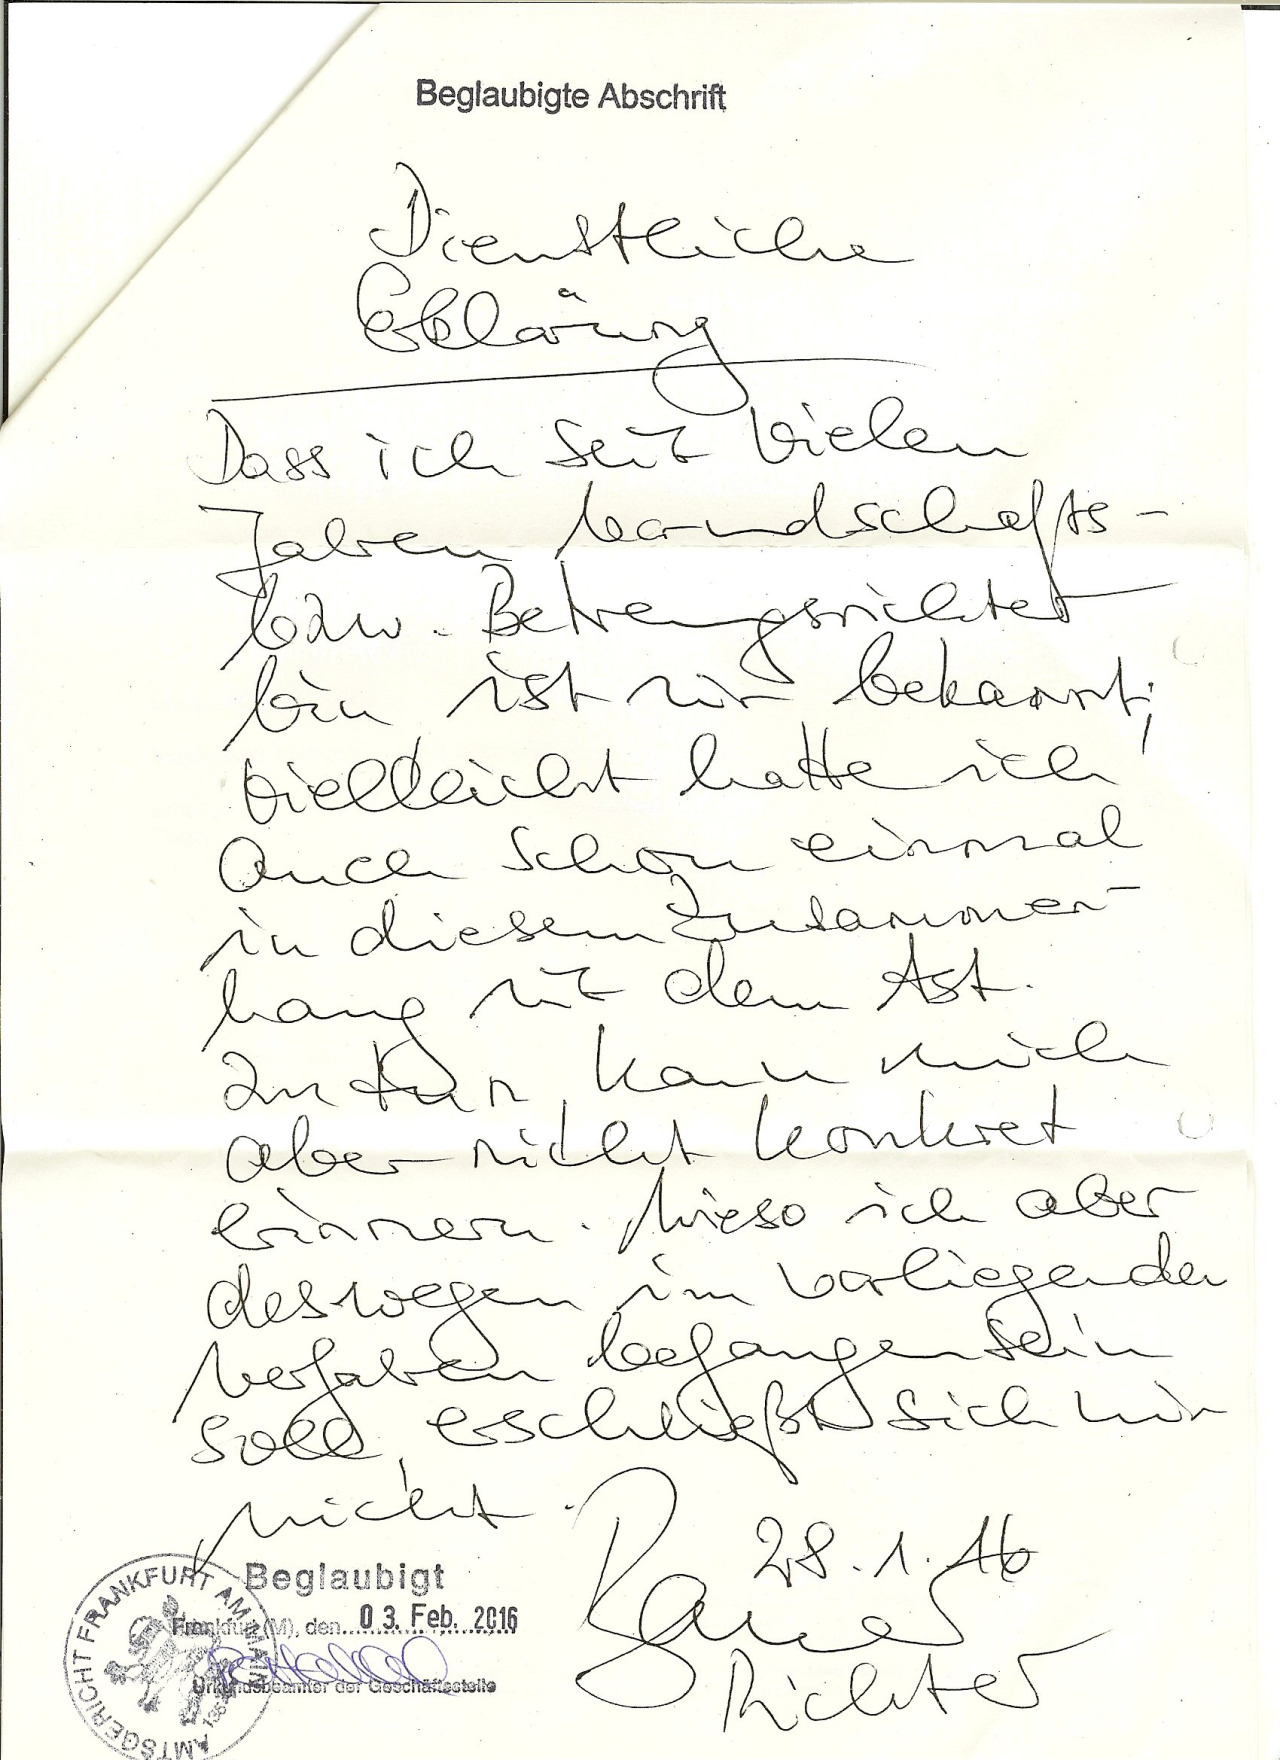 Beglaubigte Abschrift
Dienstliche
Erklärung
Dass ich seit vielen
Jahren Landschafts-
bzw. Betreungsrichter
bin ist mir bekannt;
vielleicht hatte ich
auch schon einmal
in diesem Zusammen-
hang mit dem Ast.
zu tun, kann mich
aber nicht konkret
erinnern. Wieso ich aber
deswegen im vorliegenden
Verfahren befangen sein
soll, erschließt sich mir
nicht.
28.1.16
Richter
Beglaubigt
Frankfurt (M), den 03. Feb. 2016
Urkundsbeamter der Geschäftsstelle
AMTSGERICHT FRANKFURT AM MAIN